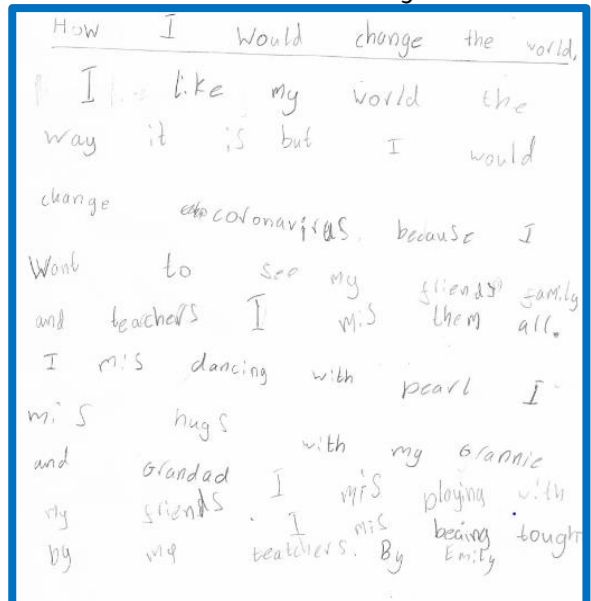 How I Would change the world,
I like my world the
way it is but I would
change coronavirus. because I
Want to see my friends family
and teachers I mis them all.
I mis dancing with pearl I
mis hugs with my Grannie
and Grandad I mis playing with
my friends. I mis beaing tought
by my teatchers. By Emily